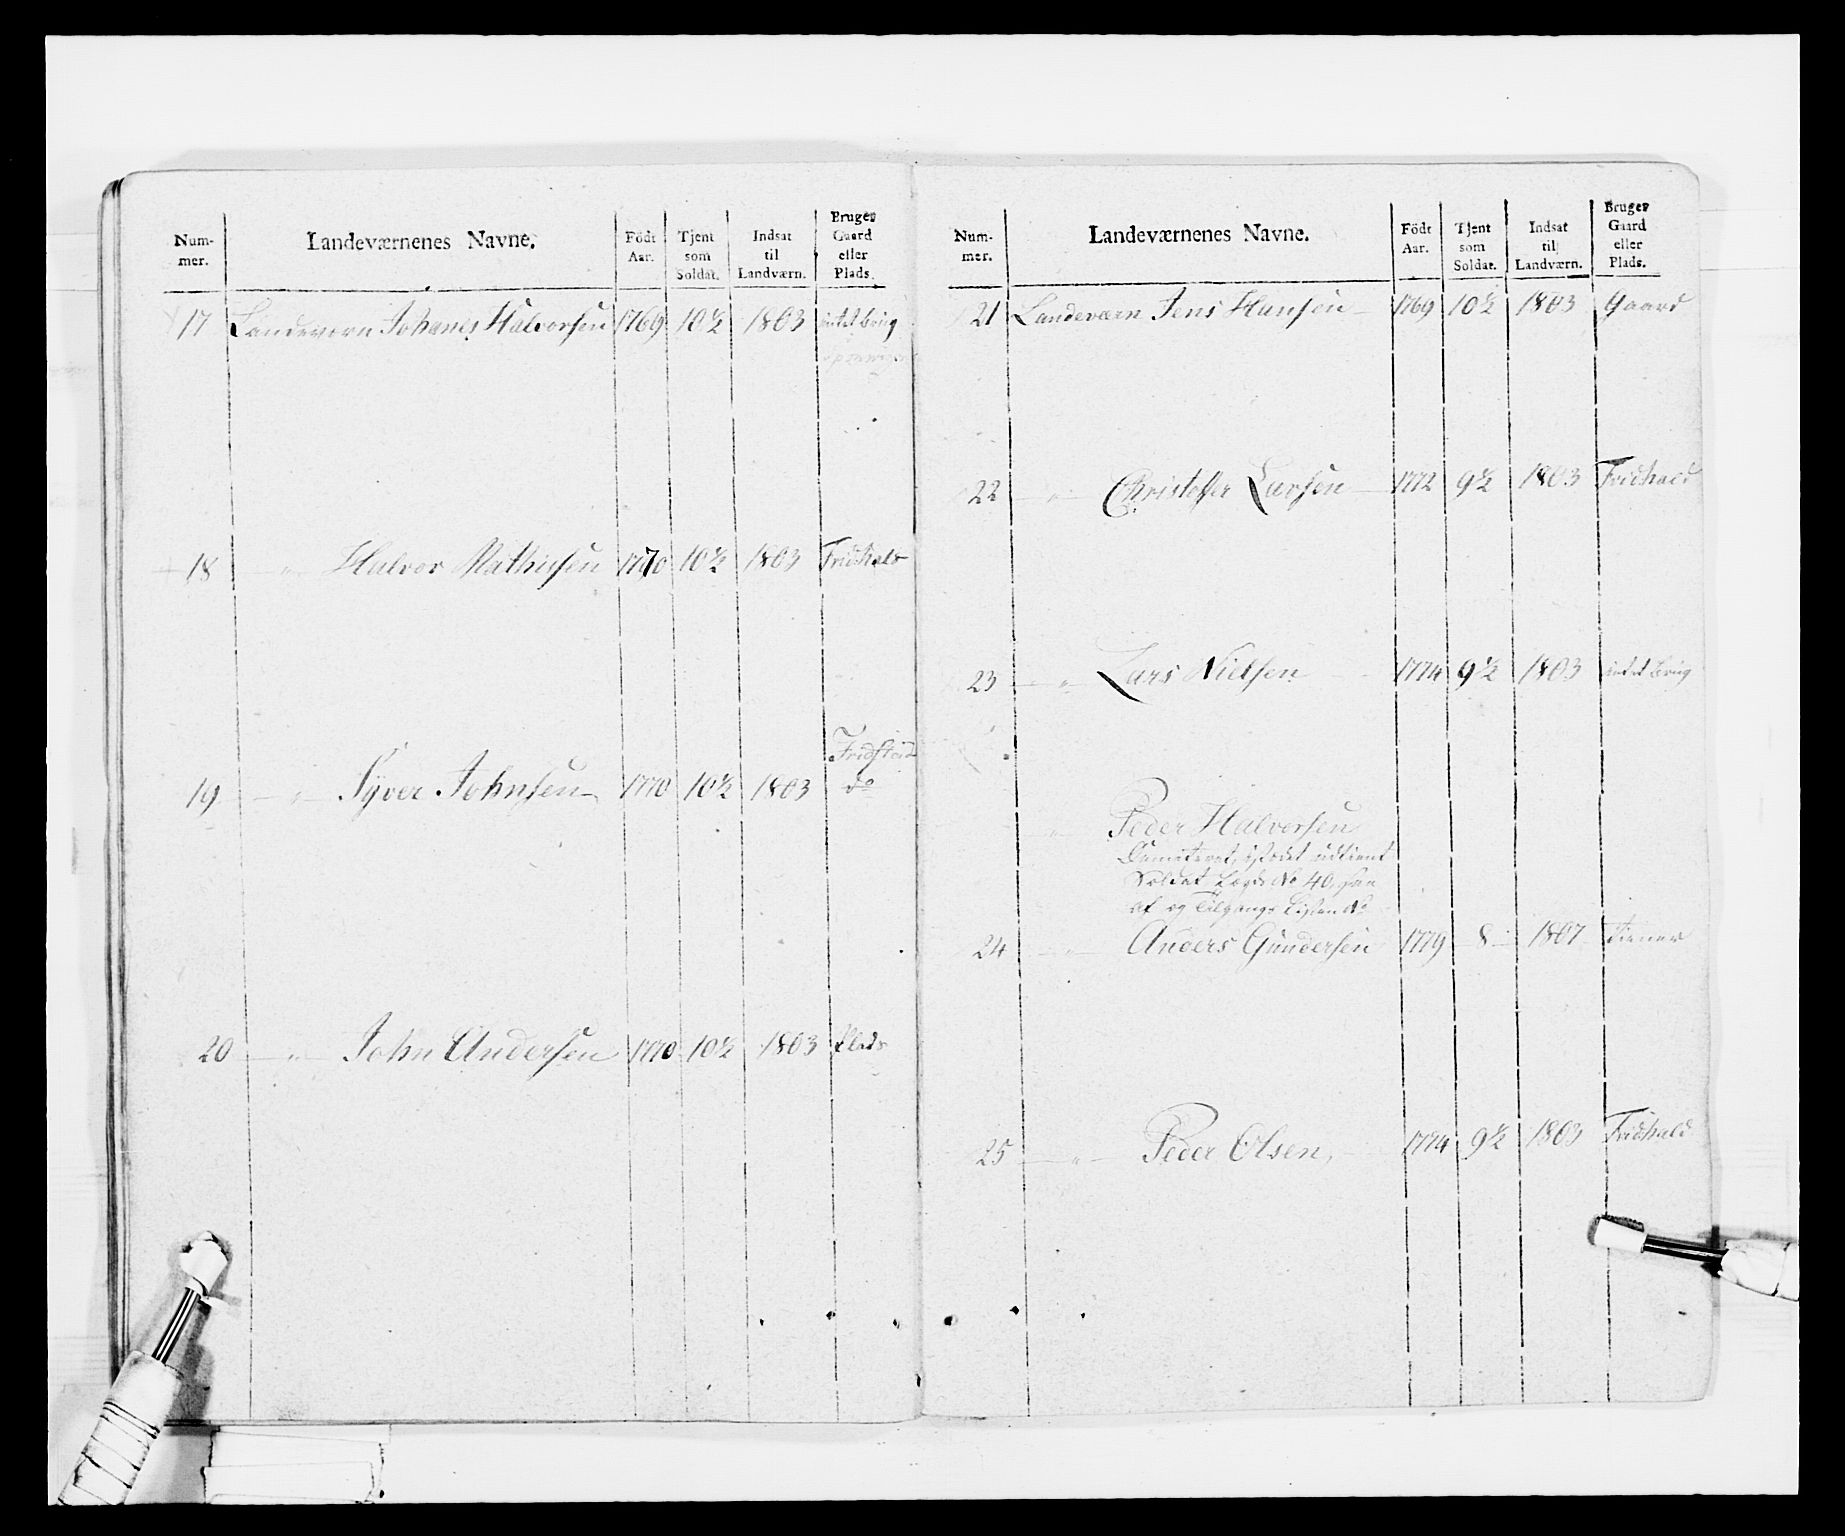 Num-
mer.
Landeværnenes Navne.
Födt
Aar.
Tjent
som
Soldat.
Indsat
til
Landværn.
Bruger
Gaard
eller
Plads.
17 Landevern Johanes Halvorsen 1769 10½ 1803 intet brug
18 " Halvor Mathisen 1770 10½ 1803 Fridhals
Fridstad
19 " Syver Johnsen 1770 10½ 1803 do
20 " John Andersen 1770 10½ 1803 Plads
Num-
mer.
Landeværnenes Navne.
Födt
Aar.
Tjent
som
Soldat.
Indsat
til
Landværn.
Bruger
Gaard
eller
Plads.
21 Landeværn Jens Hansen 1769 10½ 1803 Gaard
22 " Christoffer Larsen 1772 9½ 1803 Fridhald
23 " Lars Nielsen 1774 9½ 1803 intet brug
" Peder Halvorsen
istedet udtient
Soldat Lægd No 40, see
af og Tilgangs Listen No
24 " Anders Gundersen 1779 8 1807 tiener
25 " Peder Olsen, 1774 9½ 1803 Fridhald